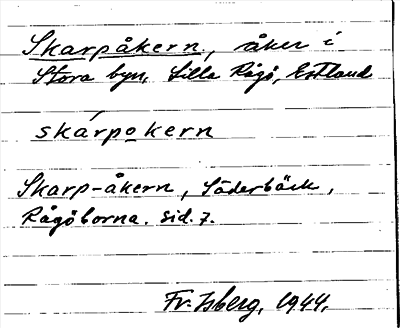 Skarpåkern, åker i
Stora byn, Lilla Rågö, Estland
skárpokern
Skarp-åkern, Söderbäck,
Rågöborna. sid. 7.
Fr. Isberg, 1944.